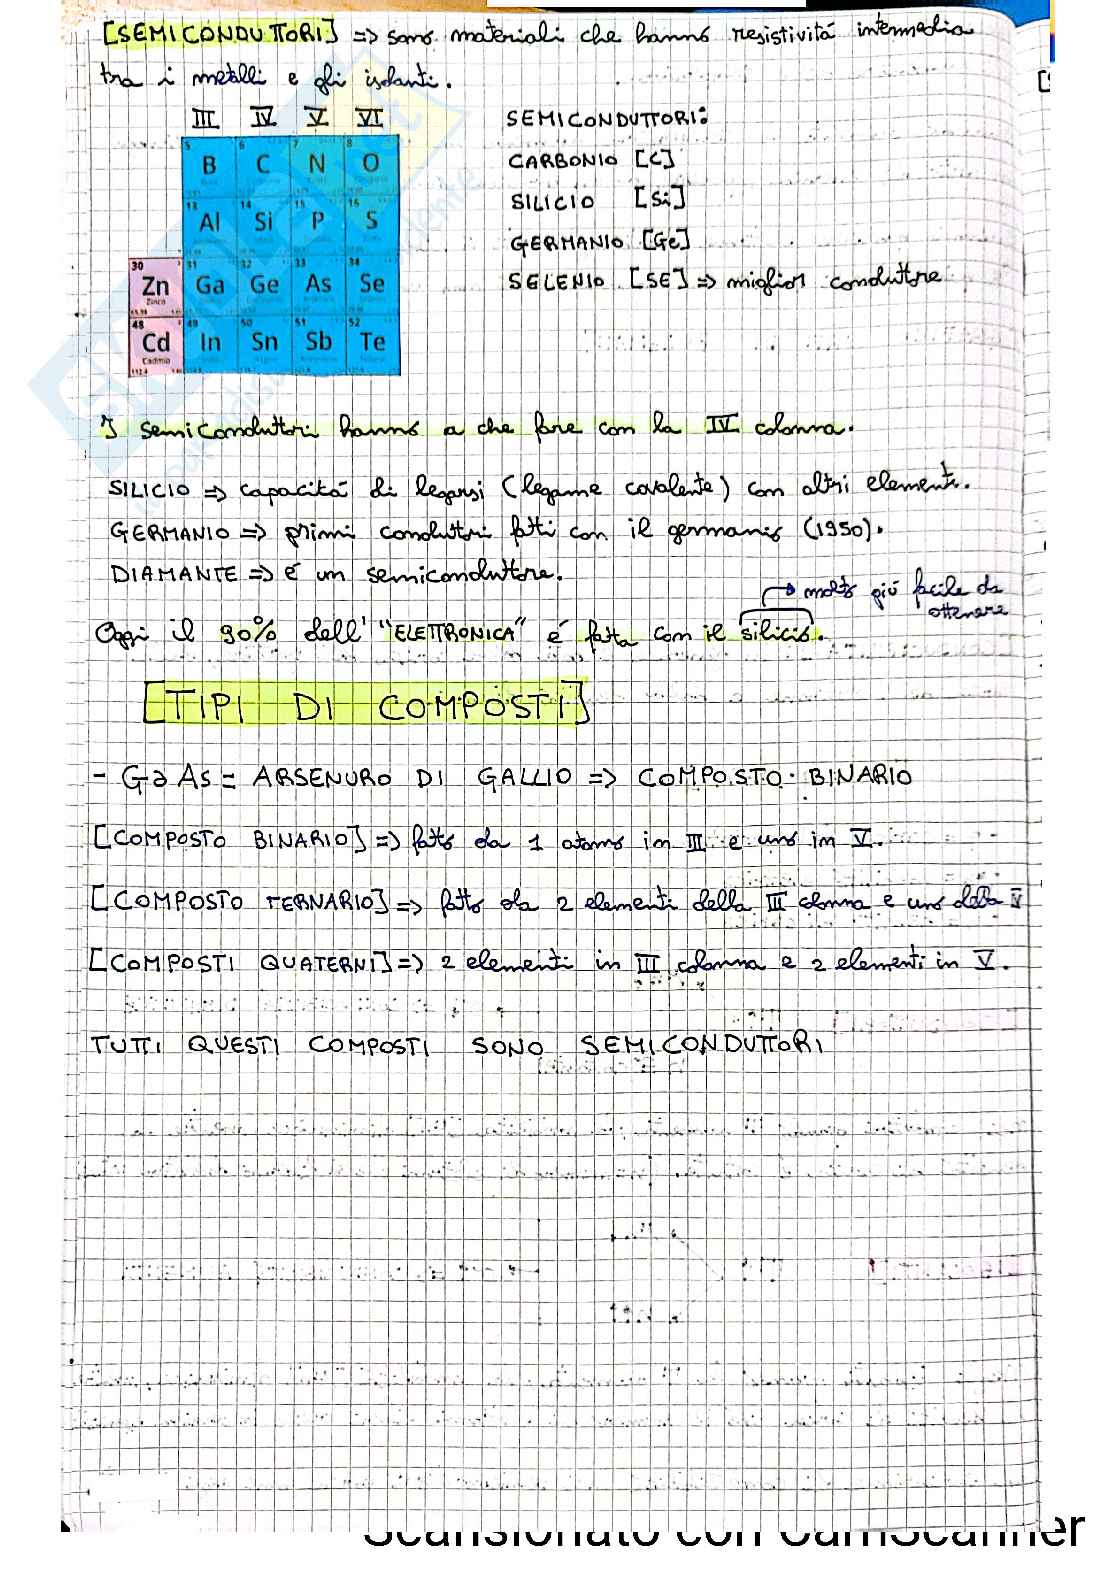 [SEMICONDUTTORI] => sono materiali che hanno resistività intermedia
tra i metalli e gli isolanti.
III IV V VI
5 6 7 8
B C N O
13 14 15 16
Al Si P S
30 31 32 33 34
Zn Ga Ge As Se
Zinco
48 49 50 51 52
Cd In Sn Sb Te
Cadmio
112.4
SEMICONDUTTORI:
CARBONIO [C]
SILICIO [Si]
GERMANIO [Ge]
SELENIO [SE] => miglior conduttore
I semiconduttori hanno a che fare con la IV colonna.
SILICIO => capacitá di legarsi (legame covalente) con altri elementi.
GERMANIO => primi conduttori fatti con il germanio (1950).
DIAMANTE => é un semiconduttore.
molto piú facile da
ottenere
Oggi il 90% dell' "ELETTRONICA" é fatta con il silicio.
[TIPI DI COMPOSTI]
- GaAs = ARSENURO DI GALLIO => COMPOSTO BINARIO
[COMPOSTO BINARIO] => fatto da 1 atomo in III e uno in V.
[COMPOSTO TERNARIO] => fatto da 2 elementi della III colonna e uno della V
[COMPOSTI QUATERNI] => 2 elementi in III colonna e 2 elementi in V.
TUTTI QUESTI COMPOSTI SONO SEMICONDUTTORI
Scansionato con CamScanner